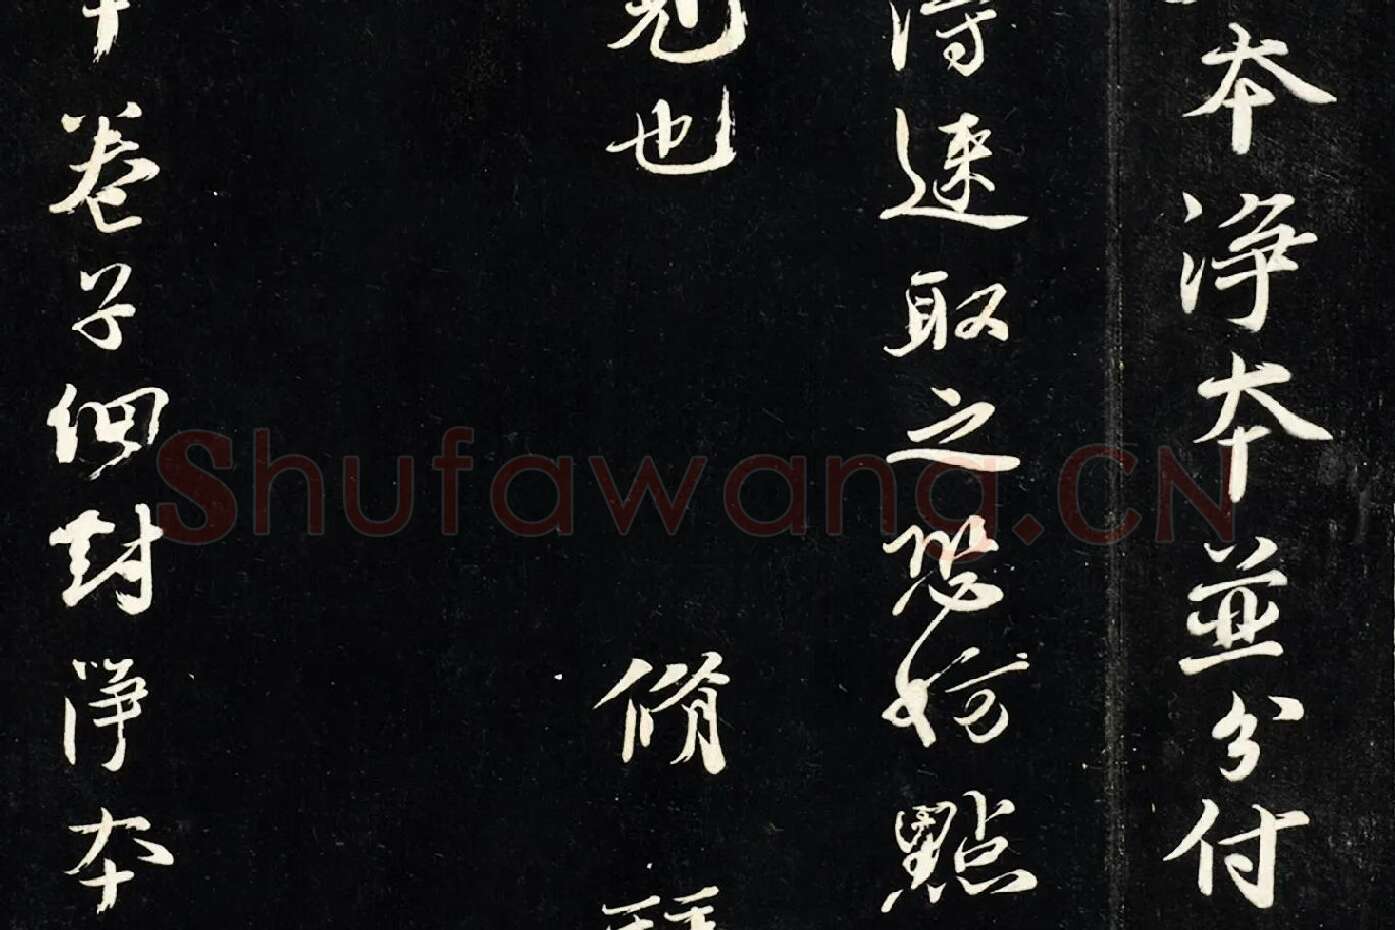 本淨本並分付
得速取之恐妨點
也
脩
卷子細封淨本
Shufawang.CN